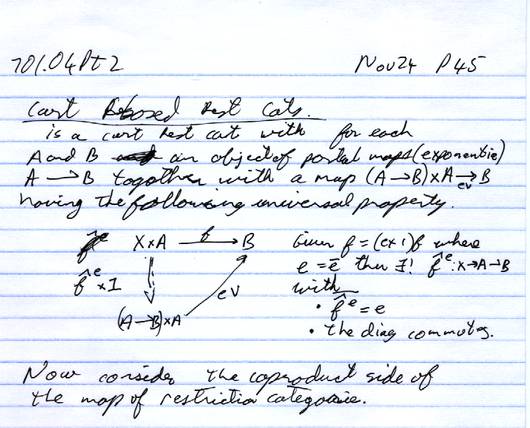 701.04 Pt 2 Nov 24 P45
Cart closed Rest Cats.
is a cart rest cat with for each
A and B an object of partial maps (exponential)
A → B together with a map (A → B) × A →ev B
having the following universal property.
X × A →f B Given f = (e × 1) f where
f̂ᵉ × 1 ev e = ē then ∃! f̂ᵉ : X → A → B
with
(A → B) × A • f̂ᵉ = e
• the diag commutes.
Now consider the coproduct side of
the map of restriction categorie.